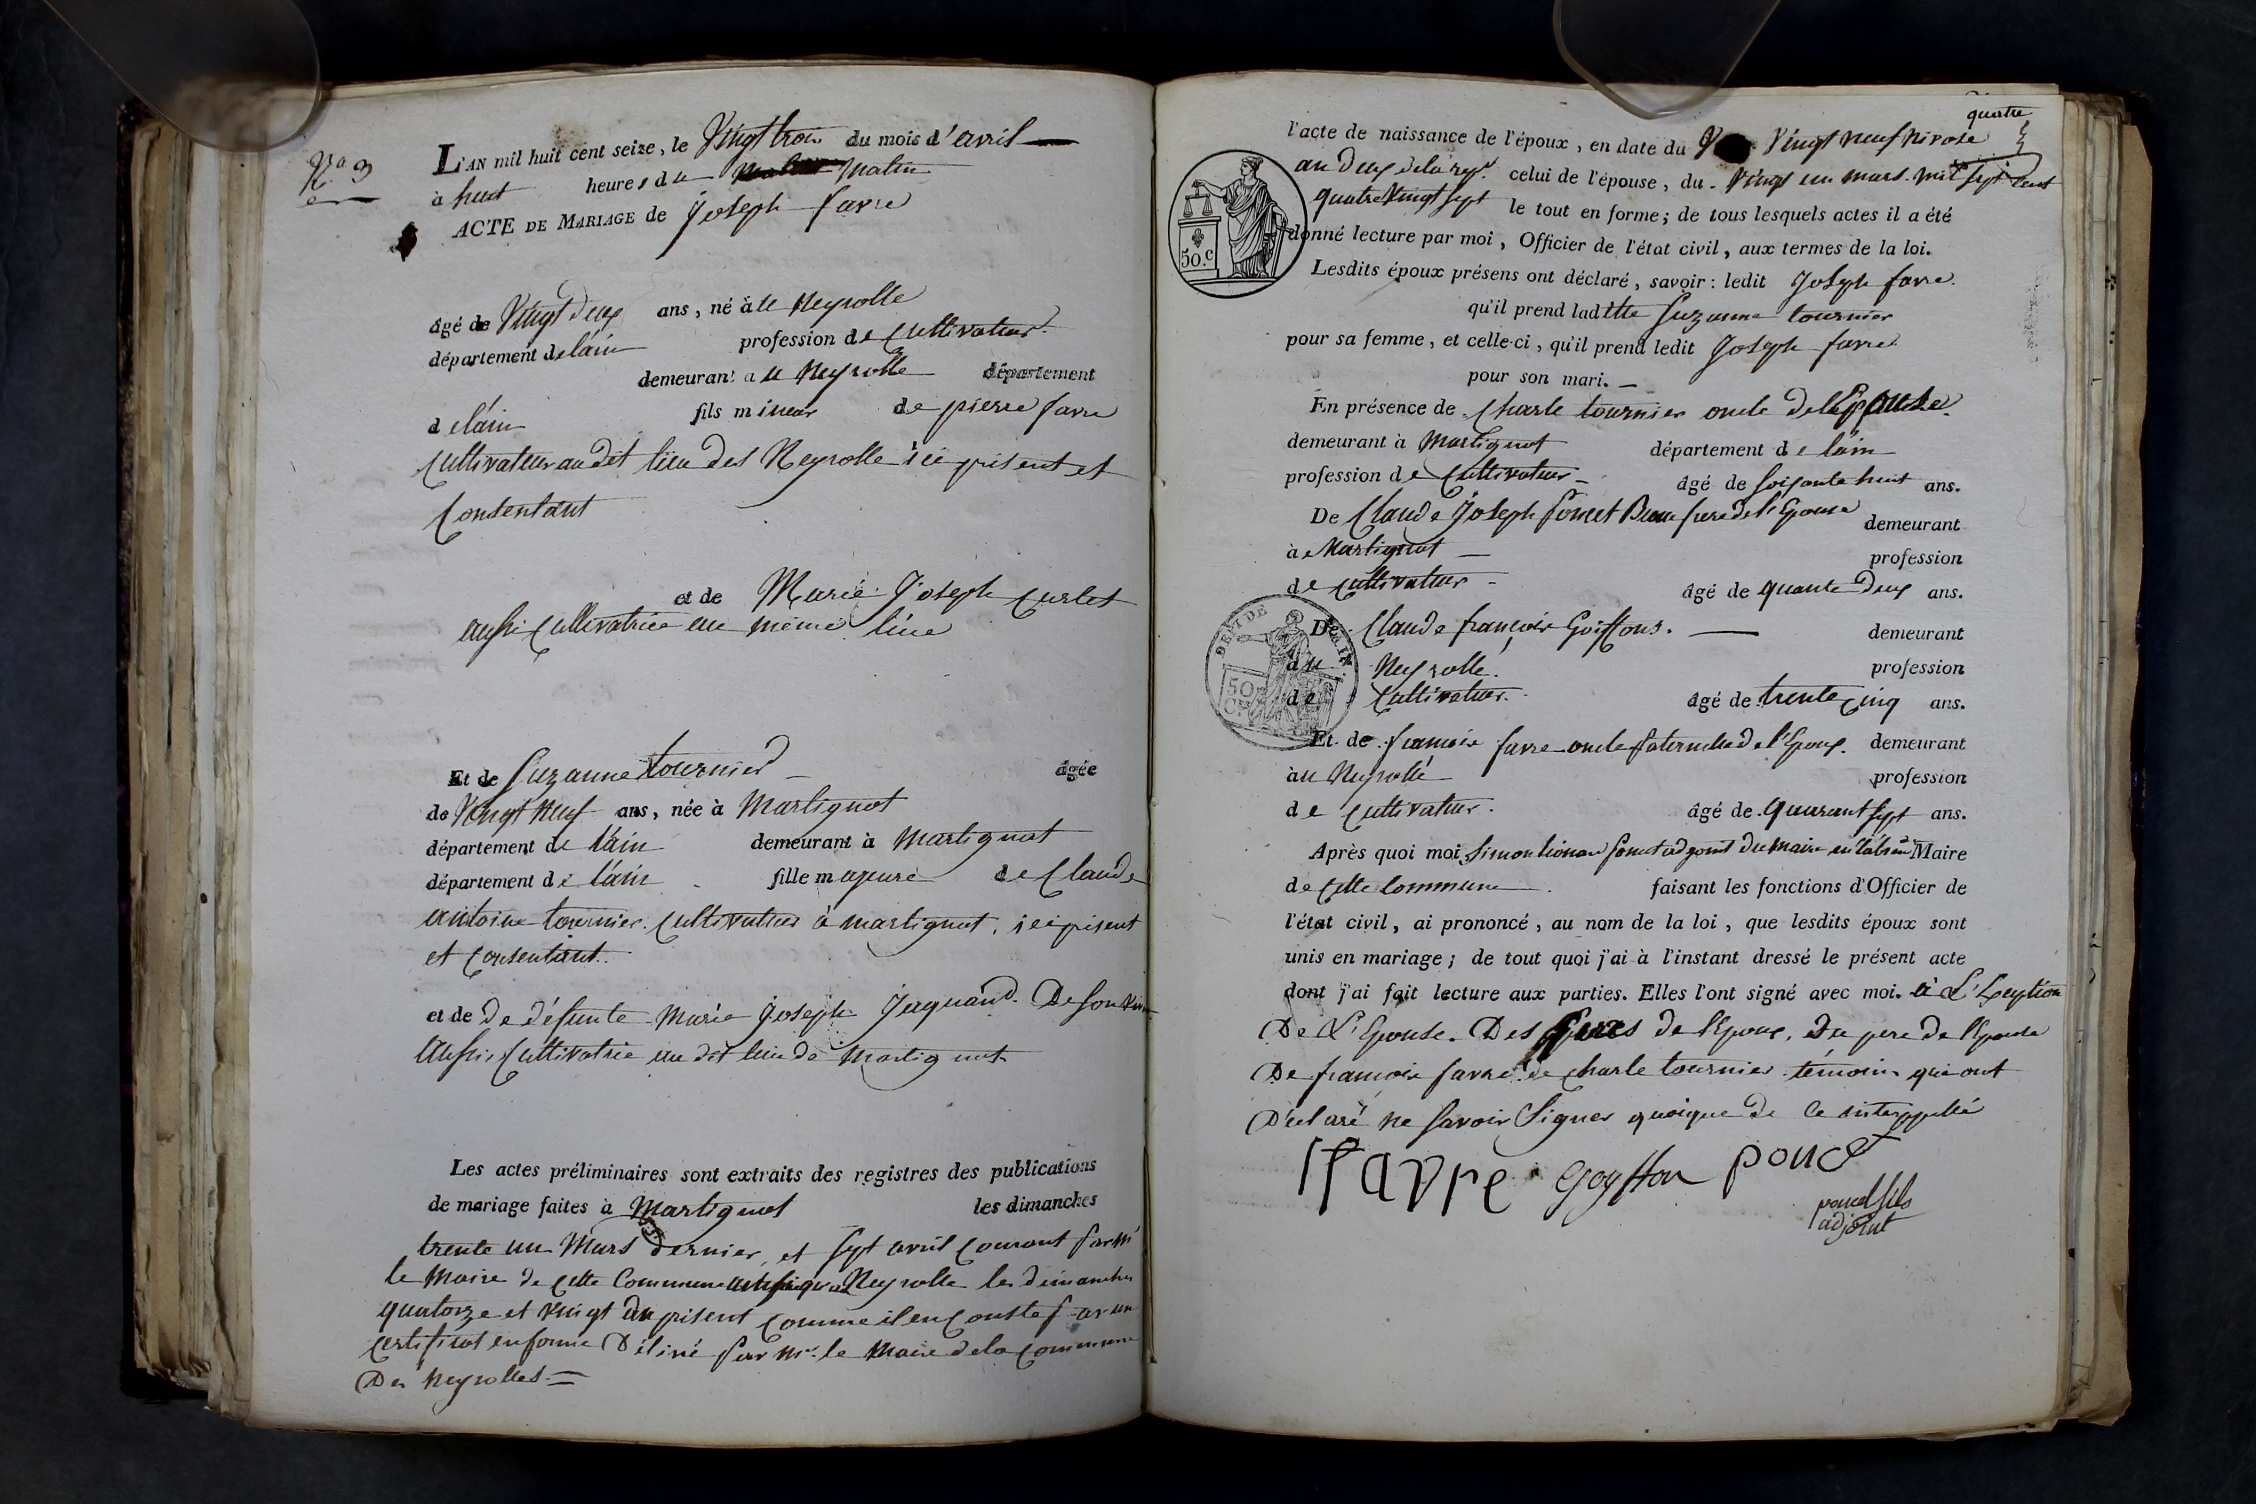 N.º 9
L'AN mil huit cent seize, le Vingt trois du mois d'avril
à huit heures du matin
ACTE DE MARIAGE de Joseph favre
âgé de Vingt deux ans, né à u Neyrolle
département de l'ain profession de Cultivateur
demeurant a u Neyrolle département
de l'ain fils mineur de pierre favre
Cultivateur au dit lieu des Neyrolle ici présent et
Consentant
et de Marie Joseph Curlet
aussi Cultivatrice au même lieu
Et de Suzanne tournier âgée
de Vingt neuf ans, née à Martignat
département de l'ain demeurant à Martignat
département de l'ain fille majeure de Claude
antoine tournier Cultivateur à martignat, ici présent
et Consentant
et de de défunte Marie Joseph Jaquand De son vivan
Aussi Cultivatrice au dit lieu de Martignat
Les actes préliminaires sont extraits des registres des publications
de mariage faites à Martignat les dimanches
trente un Mars dernier, et sept avril Courant par Mr
le Maire de cette Commune Neyrolle les dimanches
quatorze et vingt un présent comme il en Conste par un
Certificat en forme Délivré par Mr. le Maire de la Commune
Des Neyrolles
quatre
l'acte de naissance de l'époux, en date du Vingt neuf nivose
an deux de la rep. celui de l'épouse, du Vingt un mars mil sept Cent
quatre Vingt sept le tout en forme; de tous lesquels actes il a été
donné lecture par moi, Officier de l'état civil, aux termes de la loi.
50.c
Lesdits époux présens ont déclaré, savoir: ledit Joseph favre
qu'il prend laditte Suzanne tournier
pour sa femme, et celle-ci, qu'il prend ledit Joseph favre
pour son mari.
En présence de Charle tournier oncle de l'Epouse
demeurant à Martignat département de l'ain
profession de Cultivateur âgé de soixante huit ans.
De Claude Joseph Poncet Beau frere de l'Epouse demeurant
à Martignat profession
de Cultivateur âgé de quante Deux ans.
De Claude françois Goiffons. demeurant
au Neyrolle profession
de Cultivateur âgé de trente Cinq ans.
DE L'AIN
50
C.
Et de françois favre oncle paternelle de l'Epoux demeurant
au Neyrolle profession
de Cultivateur âgé de quarant sept ans.
Après quoi moi, Simon Poncet adjoint du maire en l'absence Maire
de Cette Commune faisant les fonctions d'Officier de
l'état civil, ai prononcé, au nom de la loi, que lesdits époux sont
unis en mariage; de tout quoi j'ai à l'instant dressé le présent acte
dont j'ai fait lecture aux parties. Elles l'ont signé avec moi. à L'Exeption
De L'Epouse. Des peres de l'Epoux, Du pere de l'Epouse
De françois favre de Charle tournier témoins qui ont
Déclaré ne savoir Signer quoique de Ce interppellé
favre Goyffon ponc
poncet fils
adjoint